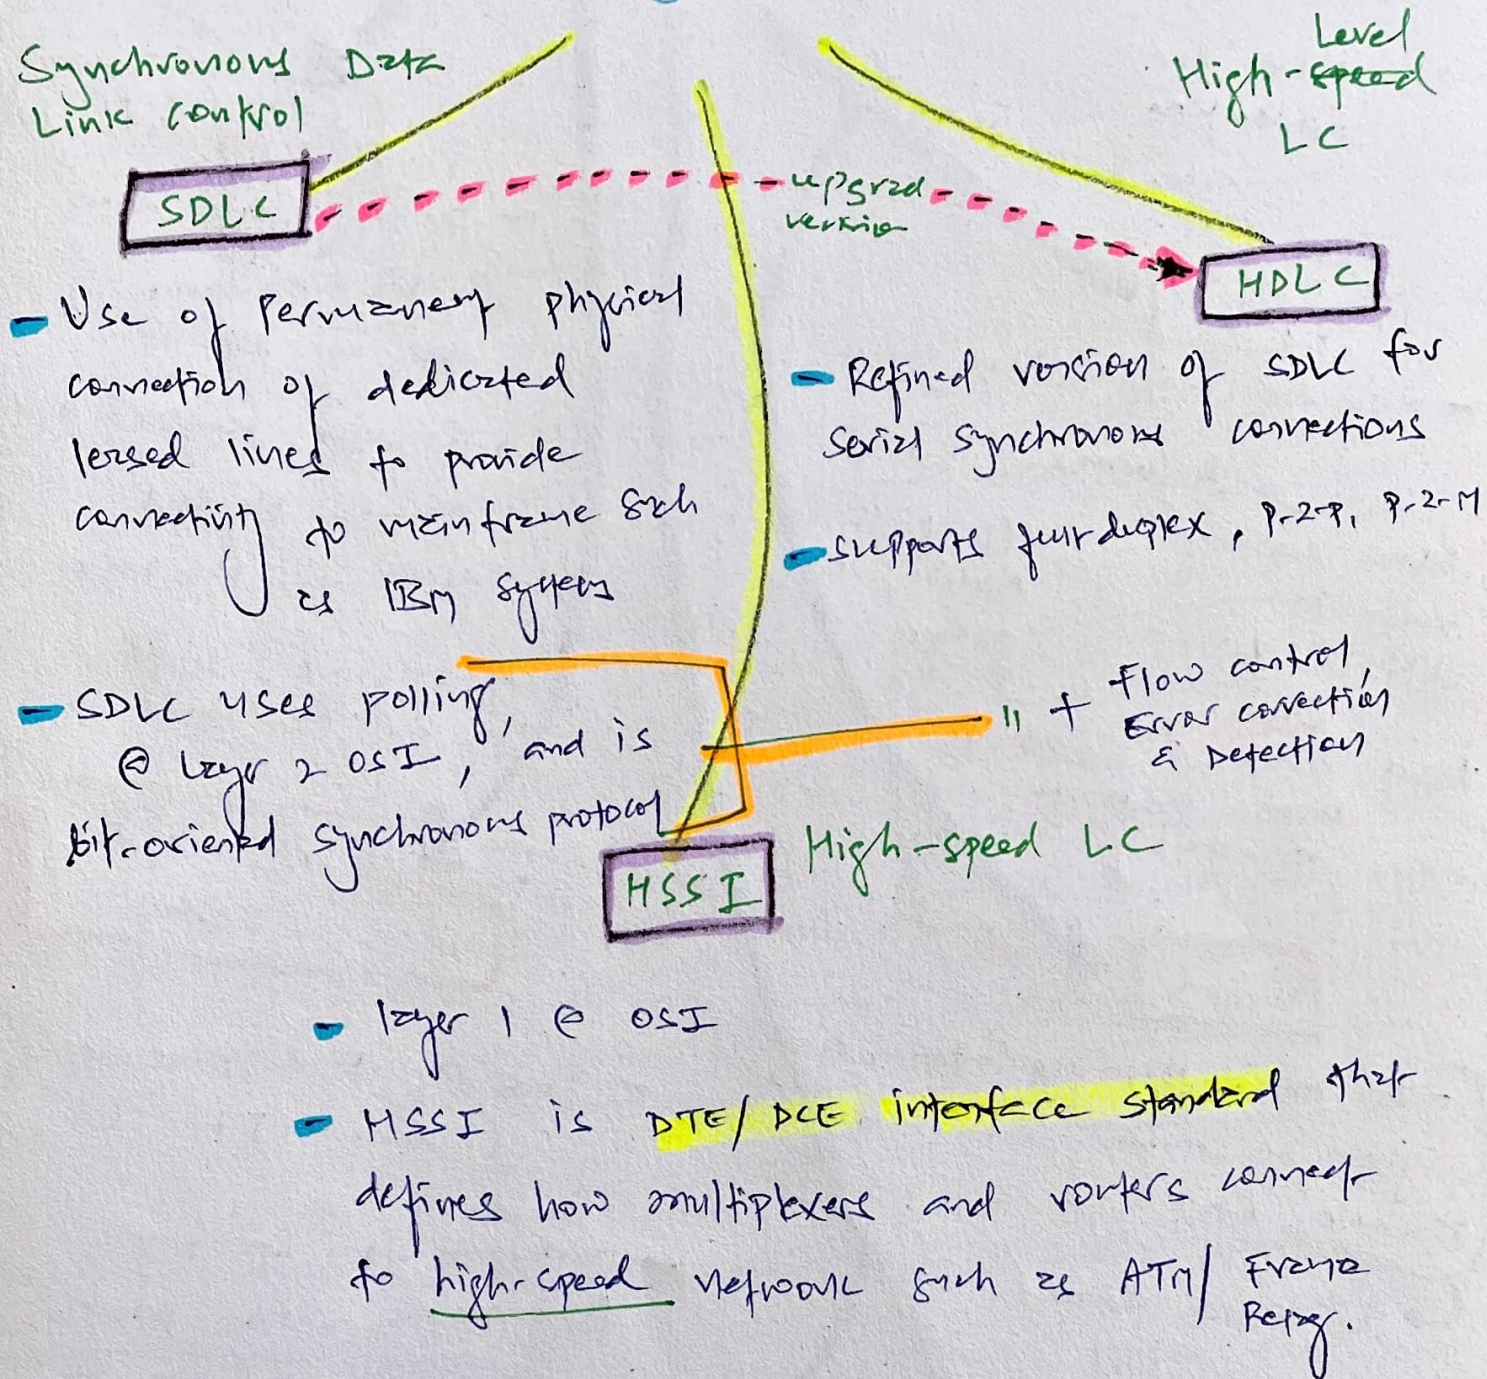 Synchronous Data
Link control
SDLC
Level
High-speed
LC
upgrad
version
HDLC
- Use of Permanent physical
connection of dedicated
leased lines to provide
connectivity to mainframe such
as IBM systems
- SDLC uses polling,
@ layer 2 OSI, and is
bit-oriented synchronous protocol
- Refined version of SDLC for
Serial synchronous connections
- supports full duplex, P-2-P, P-2-M
" + Flow control,
Error correction
& Detection
HSSI
High-speed LC
- layer 1 @ OSI
- HSSI is DTE/DCE interface standard that
defines how multiplexers and routers connect
to high-speed network such as ATM/ Frame
Relay.